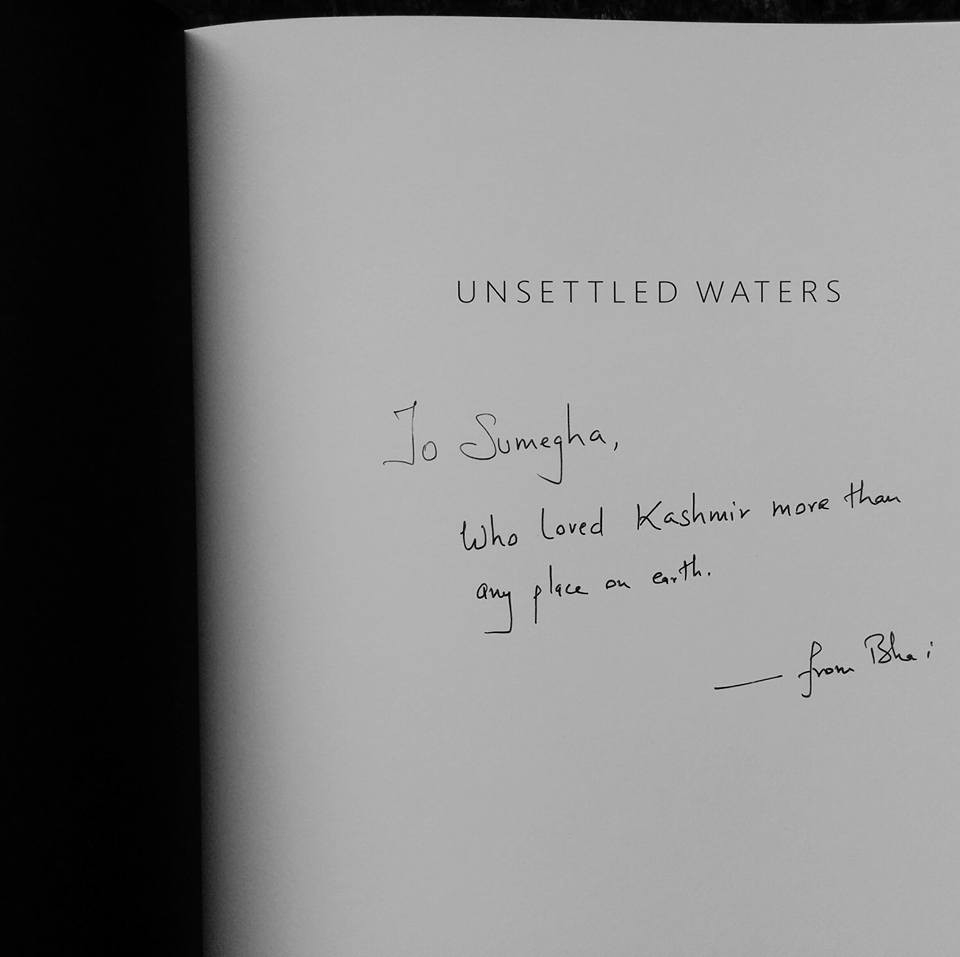 UNSETTLED WATERS
To Sumegha,
Who loved Kashmir more than
any place on earth.
— from Bhai